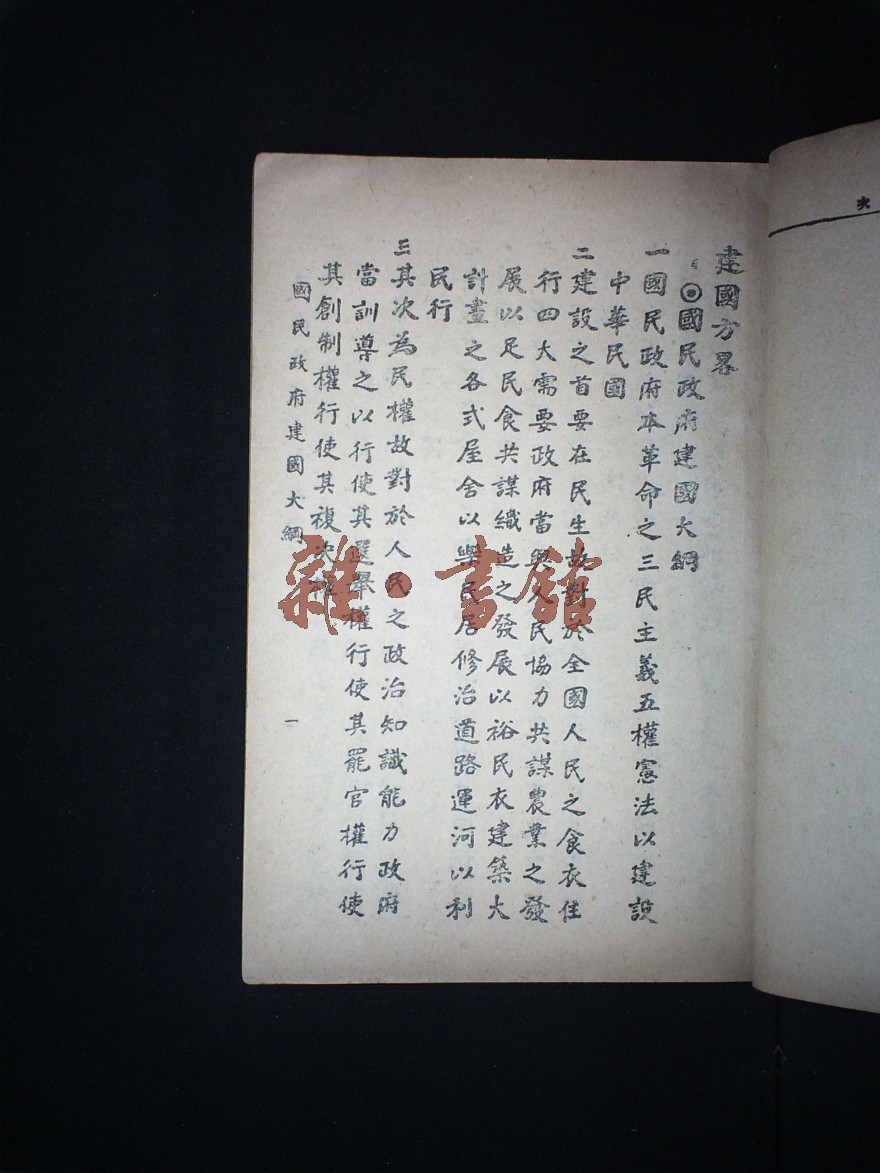 建國方畧
◎國民政府建國大綱
一國民政府本革命之三民主義五權憲法以建設
中華民國
二建設之首要在民生故對於全國人民之食衣住
行四大需要政府當與人民協力共謀農業之發
展以足民食共謀織造之發展以裕民衣建築大
計畫之各式屋舍以樂民居修治道路運河以利
民行
三其次為民權故對於人民之政治知識能力政府
當訓導之以行使其選舉權行使其罷官權行使
其創制權行使其複決權
國民政府建國大綱
一
雜·書館